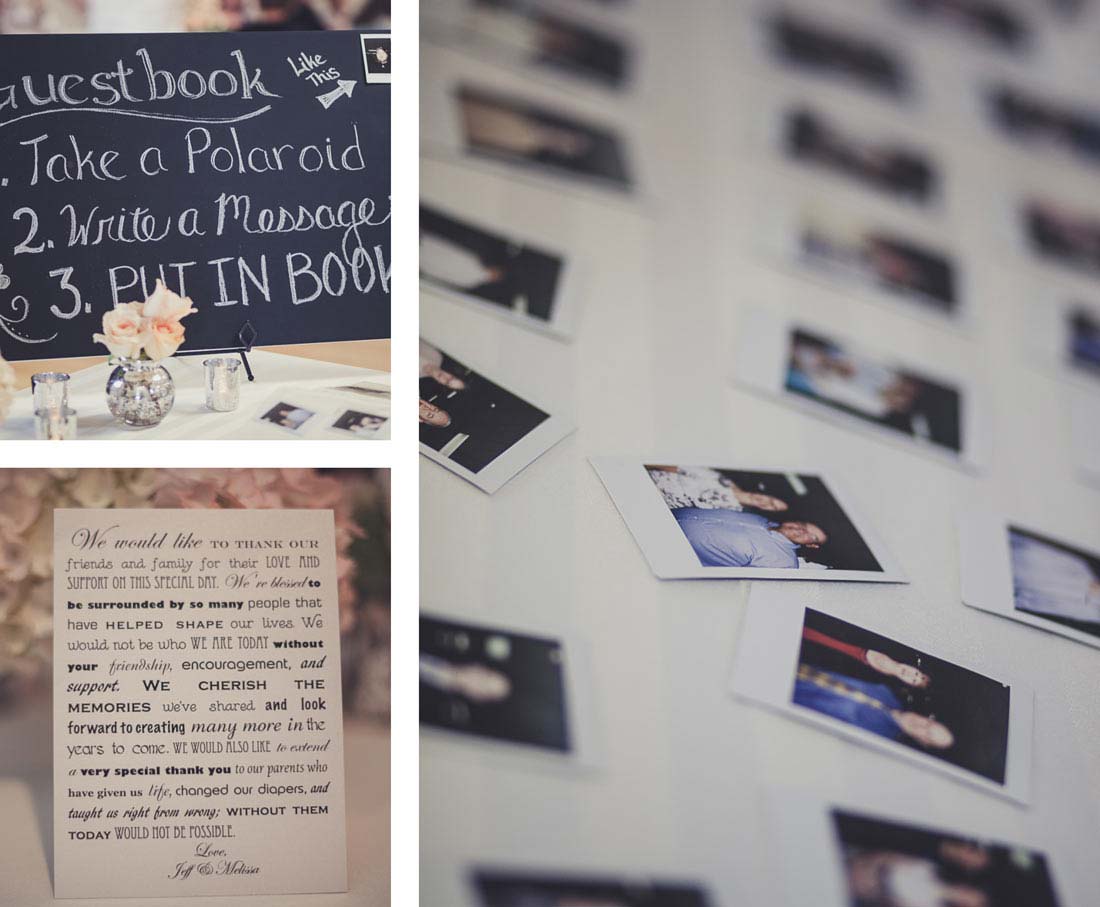 uestbook
Like
This
. Take a Polaroid
2. Write a Message
3. PUT IN BOOK
We would like TO THANK OUR
friends and family for their LOVE AND
SUPPORT ON THIS SPECIAL DAY. We're blessed to
be surrounded by so many people that
have HELPED SHAPE our lives. We
would not be who WE ARE TODAY without
your friendship, encouragement, and
support. WE CHERISH THE
MEMORIES we've shared and look
forward to creating many more in the
years to come. WE WOULD ALSO LIKE to extend
a very special thank you to our parents who
have given us life, changed our diapers, and
taught us right from wrong; WITHOUT THEM
TODAY WOULD NOT BE POSSIBLE.
Love,
Jeff & Melissa